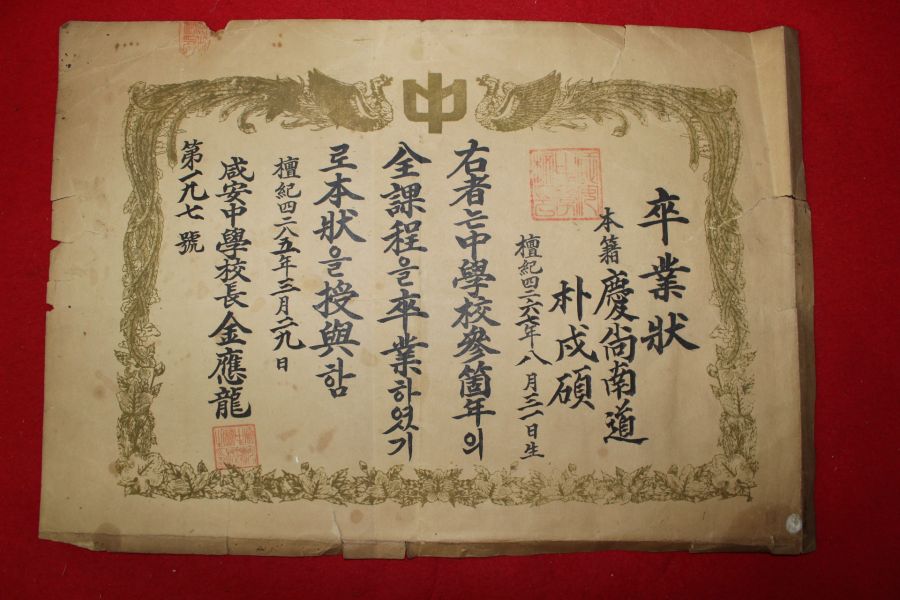 中
卒業狀
本籍 慶尙南道
朴戍碩
檀紀四二六七年八月三一日生
右者는中學校參箇年의
全課程을卒業하였기
로本狀을授與함
檀紀四二八五年三月二九日
咸安中學校長 金應龍
第一九七號